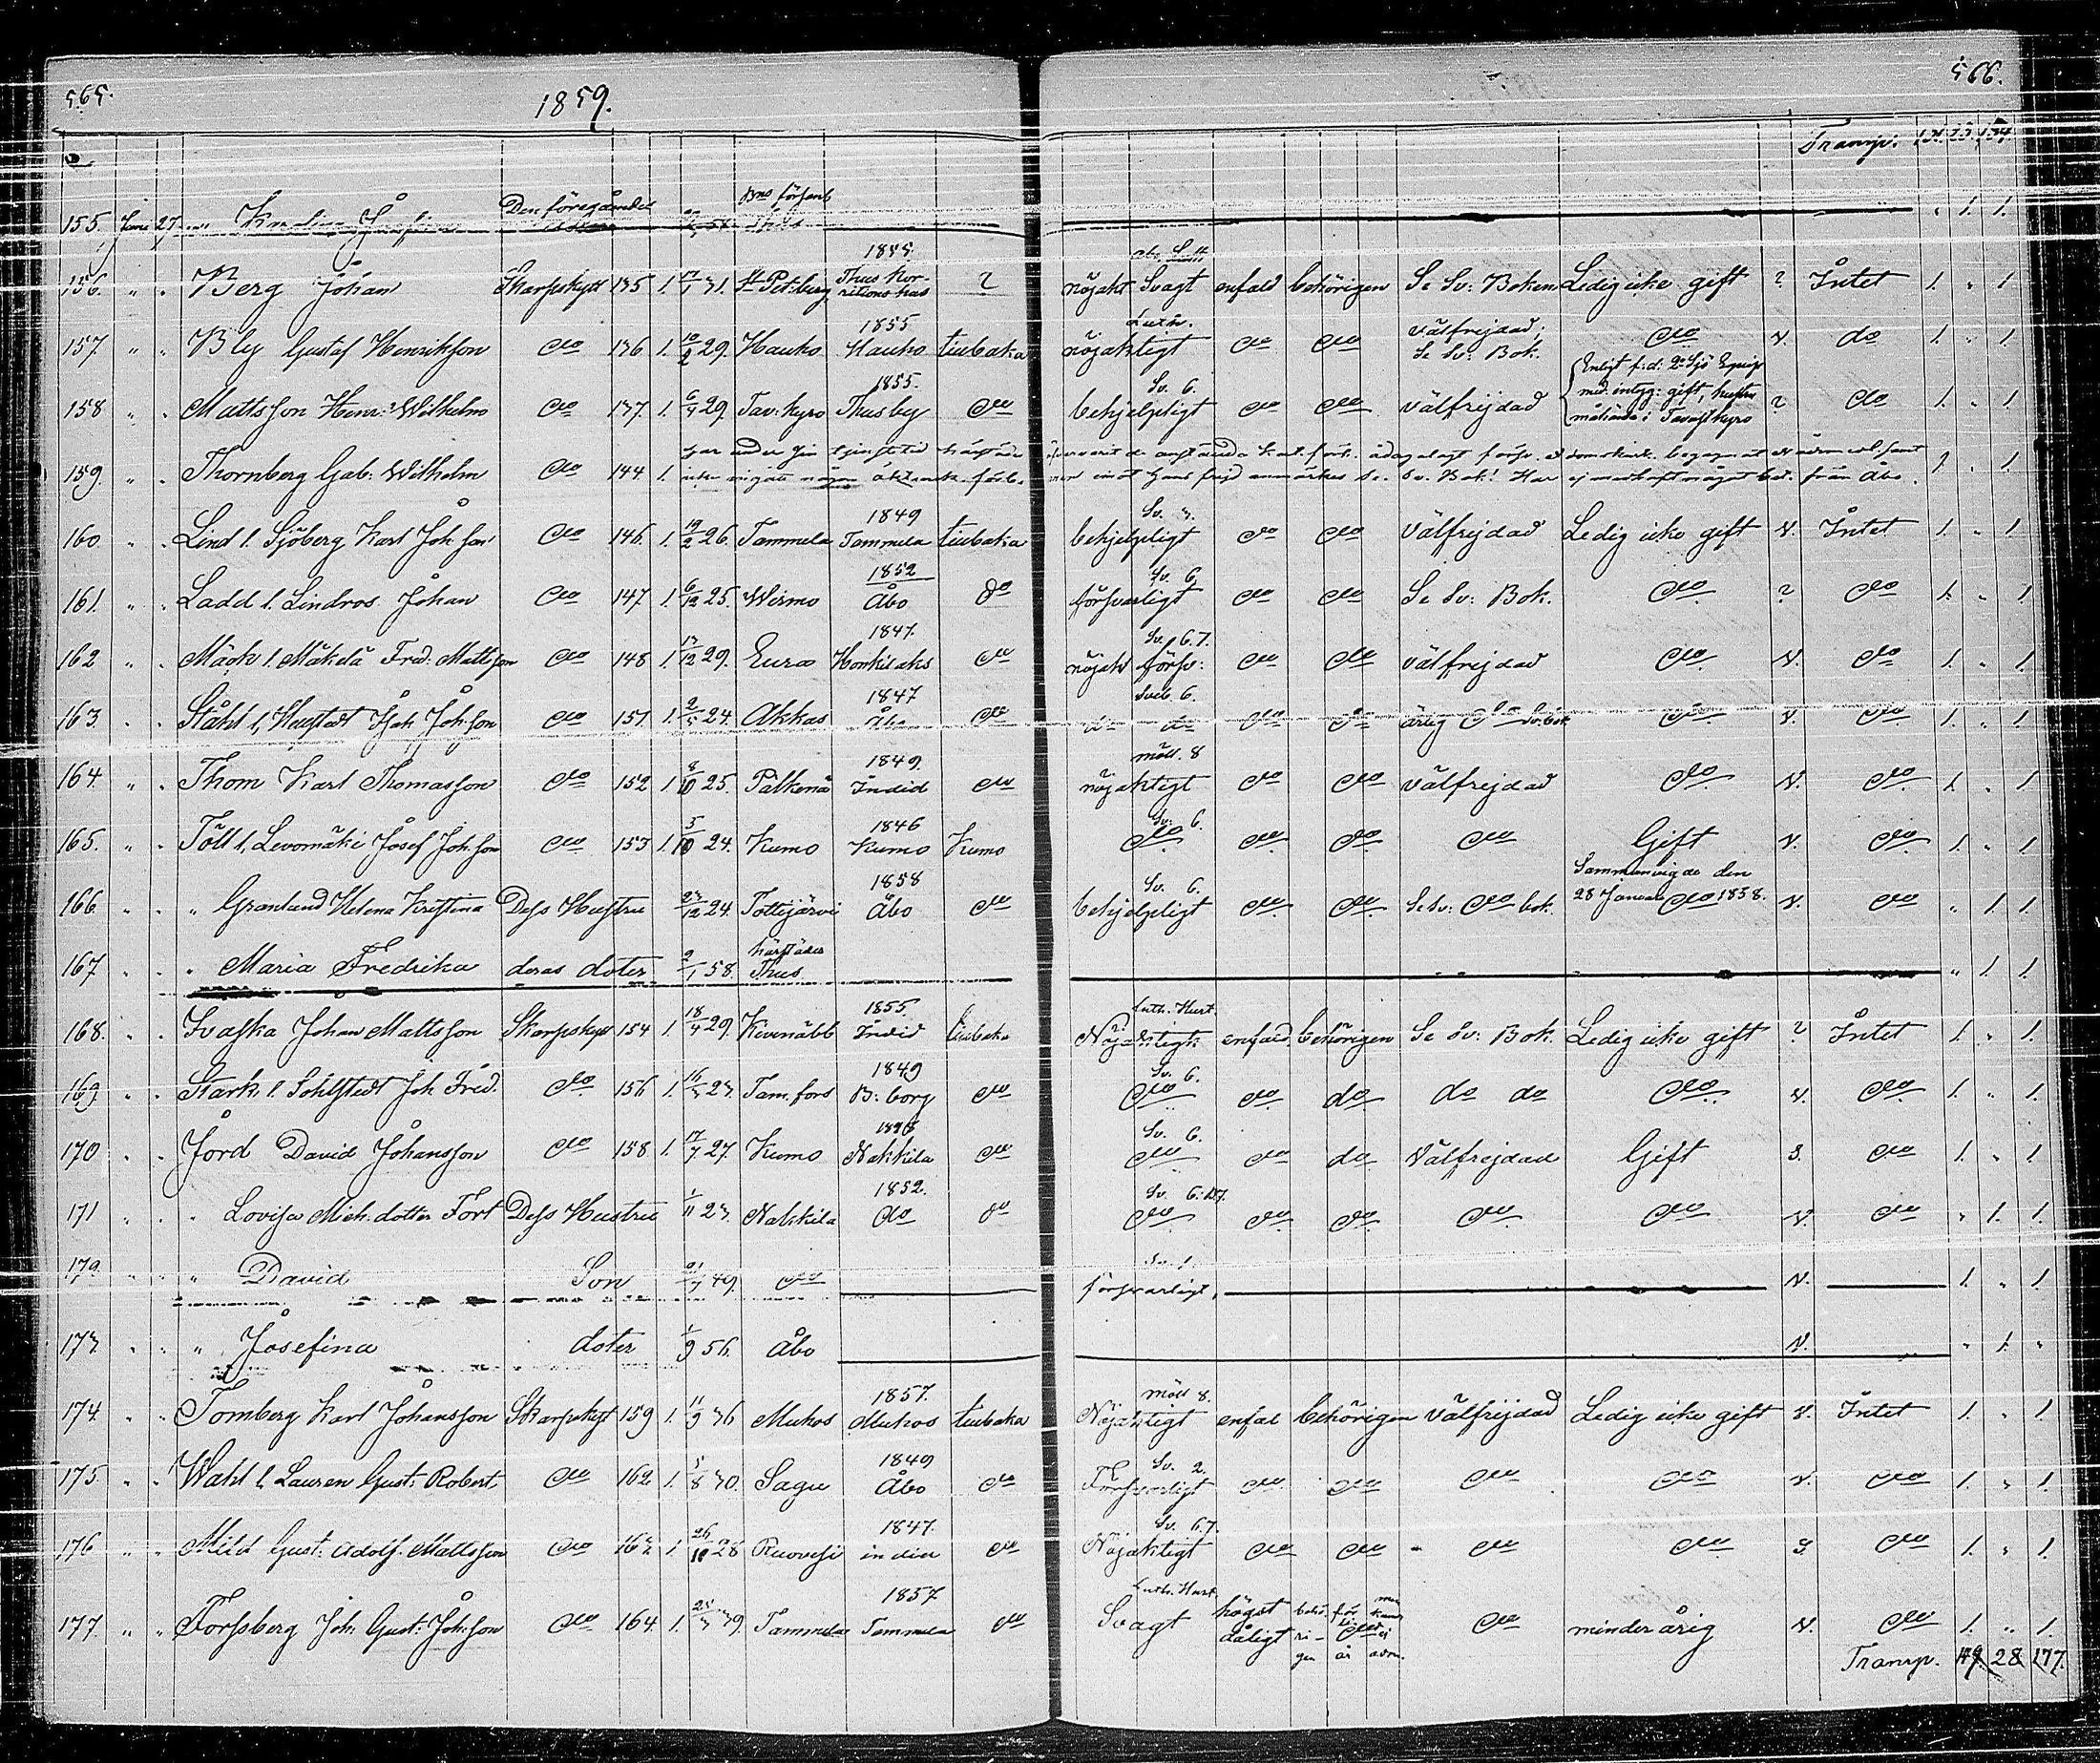 565.
1859.
566.
Transp. 131. 23. 154.
155. Juni 27. Karolina Josefina Den föregåendes 1. 1.
156. " " Berg Johan Skarpskytt 135 1. 31. St Pet:burg 1855 ? nöjakt Svagt enfald behörigen Se Sv: Boken Ledig icke gift ? Intet 1. " 1
157. " " Bly Gustaf Henrikson do 136 1. 10/2 29. Hauho 1855 Hauho tillbaka Luth. nöjaktigt do do välfrejdad; Se Sv: Bok. do N. do 1. " 1.
158 " " Mattsson Henr: Wilhelm do 137. 1. 6/4 29. Tav: kyro 1855. Thusby do Sv. 6. behjelpligt do do välfrejdad Enligt f:d: 2a Sjö Equip med intyg: gift, hustru i Tavastkyro ? do 1. " 1.
159. " " Thornberg Gab: Wilhelm do 144 1. har under sin tjenstetid härstädes icke ingått någon äktensk. förb. från Åbo. 1. " 1.
160 " " Lind l. Sjöberg Karl Joh:son do 146. 1. 19/2 26. Tammela 1849 Tammela tillbaka Sv. 3. behjelpligt do do välfrejdad Ledig icke gift N. Intet 1. " 1
161. " " Ladd l. Lindros Johan do 147 1. 6/12 25. Wirmo 1852 Åbo do Sv. 6. försvarligt do do Se Sv: Bok. do ? do 1. " 1.
162 " " Mäck l. Mäkelä Fred: Mattsson do 148 1. 13/12 29. Eura 1847. Honkilaks do Sv. 6.7. nöjakt försv: do do välfrejdad do N. do 1. " 1.
163. " " Ståhl l. Joh:son do 151. 1. 24. Akkas 1847 Åbo do Sveb. 6. do do do do ärlig do Sv: bok do N. do 1. " 1.
164. " " Thom Karl Thomasson do 152 1. 8/10 25. Pälkenä 1849 Indid do möll. 8 nöjaktigt do do välfrejdad do N. do 1. " 1
165. " " Töll l. Levomäki Josef Joh:son do 153 1. 5/10 24. Kumo 1846 Kumo Kumo Sv. 6. do do do do Gift N. do 1. " 1.
166. " " " Granlund Helena Kristina Dess Hustru 23/12 24. Tottijärvi 1858 Åbo do Sv. 6. behjelpligt do do Se Sv: do bok. Sammanvigde den 28 Januari do 1858. N. do " 1. 1.
167 " " " Maria Fredrika deras doter 2/1 58. härstädes Thus " 1. 1.
168. " " Svaska Johan Mattsson Skarpskytt 154 1. 18/4 29. Kivenäbb 1855. Indid tillbaka Luth. Kurt. Nöjaktigt enfald. behörigen Se Sv: Bok. Ledig icke gift ? Intet 1. " 1.
169. " " Stark l. Sohlstedt Joh Fred. do 156 1. 23. Tam. fors 1849 B: borg do Sv. 6. do do do do do do N. do 1. " 1.
170 " " Jord David Johansson do 158 1. 17/7 27. Kumo Nakkila do Sv. 6. do do do Välfrejdad Gift S. do 1. " 1
171 " " " Lovisa Mich: dotter Fort Dess Hustru 1/11 23. Nakkila 1852. do do do do do do do N. do " 1. 1.
172. " " " David Son 49. do Sv. 1. försvarligt, N. 1. " 1.
173 " " " Josefina doter 1/9 56. Åbo N. " 1. "
174. " " Tomberg Karl Johansson Skarpskytt 159 1. 11/9 36 Muhos 1857. Muhos tillbaka möll 8. Nöjaktigt enfal behörigen Välfrejdad Ledig icke gift N. Intet 1. " 1.
175. " " Wahl l. Lauren Gust: Robert do 162. 1. 5/8 30. Sagu 1849 Åbo do Sv. 2. Försvarligt do do do do N. do 1. " 1.
176 " " Mild Gust: Adolf. Mattsson do 163. 1. 26/10 28 Ruovesi 1847. indid do Sv. 6.7. Nöjaktigt do do do do S. do 1. " 1.
177. " " Forssberg Joh: Gust: Joh:son do 164. 1. 39. Tammela 1857 Tammela do Luth. Kurt. Svagt högst dåligt behörigen do minderårig N. do 1. " 1.
Transp. 149 28 177.